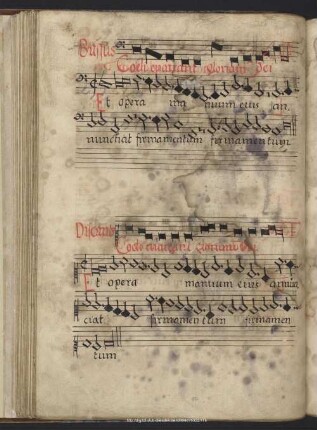 Bassus
Coeli enarrant gloriam Dei
Et opera ma nuum eius an
nunciat firmamentum firmamentum
Discantus
Coeli enarrant gloriam Dei
Et opera manuum eius annun
ciat firmamentum firmamen
tum